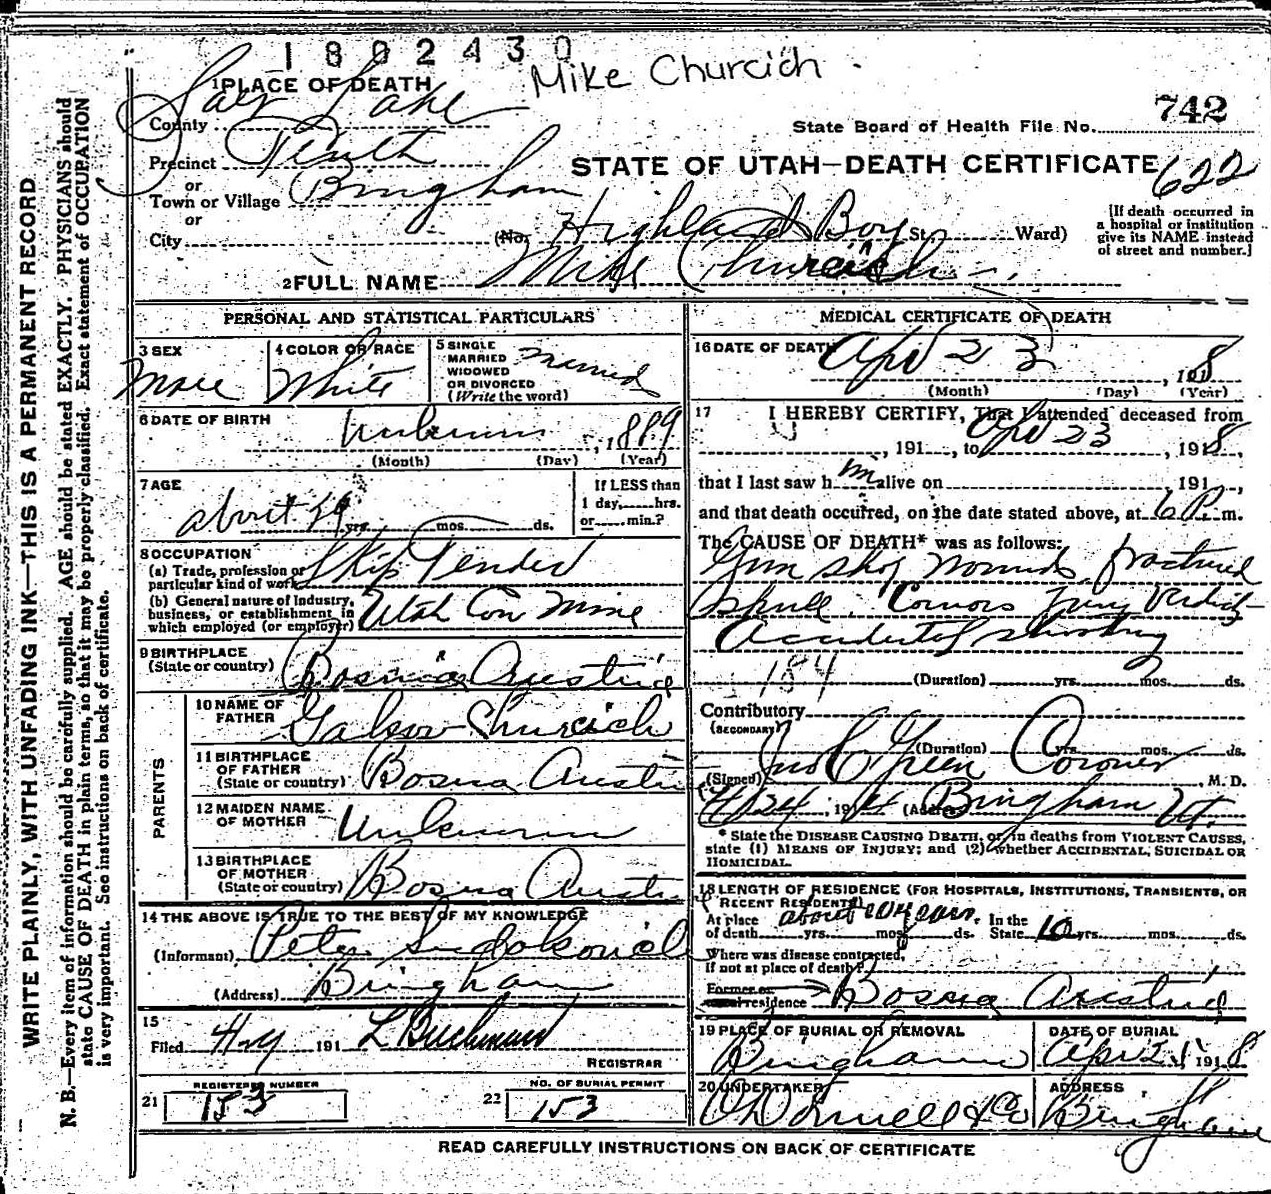 1802430
Mike Churcich
1 PLACE OF DEATH
County Salt Lake
742
State Board of Health File No.
Precinct Tenth
STATE OF UTAH—DEATH CERTIFICATE 622
or
Town or Village Bingham
or
City (No. Highland Boy St. Ward)
[If death occurred in a hospital or institution give its NAME instead of street and number.]
2 FULL NAME Mike Churcich
PERSONAL AND STATISTICAL PARTICULARS
3 SEX Male
4 COLOR OR RACE White
5 SINGLE MARRIED WIDOWED OR DIVORCED (Write the word) Married
6 DATE OF BIRTH Unknown, 1889
(Month) (Day) (Year)
7 AGE about 29 yrs. mos. ds.
If LESS than 1 day, hrs. or min.?
8 OCCUPATION
(a) Trade, profession or particular kind of work Skip Tender
(b) General nature of Industry, business, or establishment in which employed (or employer) Utah Con Mine
9 BIRTHPLACE (State or country) Bosnia Austria
PARENTS
10 NAME OF FATHER Churcich
11 BIRTHPLACE OF FATHER (State or country) Bosna Austri
12 MAIDEN NAME OF MOTHER Unknown
13 BIRTHPLACE OF MOTHER (State or country) Bosna Austri
14 THE ABOVE IS TRUE TO THE BEST OF MY KNOWLEDGE
(Informant) Peter
(Address) Bingham
15
Filed 191 REGISTRAR
21 REGISTERED NUMBER 153
22 NO. OF BURIAL PERMIT 153
MEDICAL CERTIFICATE OF DEATH
16 DATE OF DEATH Apr 23, 1918
(Month) (Day) (Year)
17 I HEREBY CERTIFY, That I attended deceased from
, 191 , to Apr 23, 1918,
that I last saw him alive on , 191 ,
and that death occurred, on the date stated above, at 6 P. m.
The CAUSE OF DEATH* was as follows:
Gun shot wounds, fractured
skull. Cornors Jury Verdict
Accidental shooting
184
(Duration) yrs. mos. ds.
Contributory
(SECONDARY)
(Duration) yrs. mos. ds.
(Signed) Jno C Green Coroner M. D.
4/24, 191 (Address) Bingham Ut.
* State the DISEASE CAUSING DEATH, or, in deaths from VIOLENT CAUSES, state (1) MEANS OF INJURY; and (2) whether ACCIDENTAL, SUICIDAL OR HOMICIDAL.
18 LENGTH OF RESIDENCE (FOR HOSPITALS, INSTITUTIONS, TRANSIENTS, OR RECENT RESIDENTS)
At place of death about 10 years. yrs. mos. ds. In the State 10 yrs. mos. ds.
Where was disease contracted, if not at place of death?
Former or usual residence Bosna Austria
19 PLACE OF BURIAL OR REMOVAL Bingham
DATE OF BURIAL 1918
20 UNDERTAKER O'Donnell & Co
ADDRESS Bingham
READ CAREFULLY INSTRUCTIONS ON BACK OF CERTIFICATE
WRITE PLAINLY, WITH UNFADING INK—THIS IS A PERMANENT RECORD
N. B.—Every item of information should be carefully supplied. AGE should be stated EXACTLY. PHYSICIANS should
state CAUSE OF DEATH in plain terms, so that it may be properly classified. Exact statement of OCCUPATION
is very important. See instructions on back of certificate.